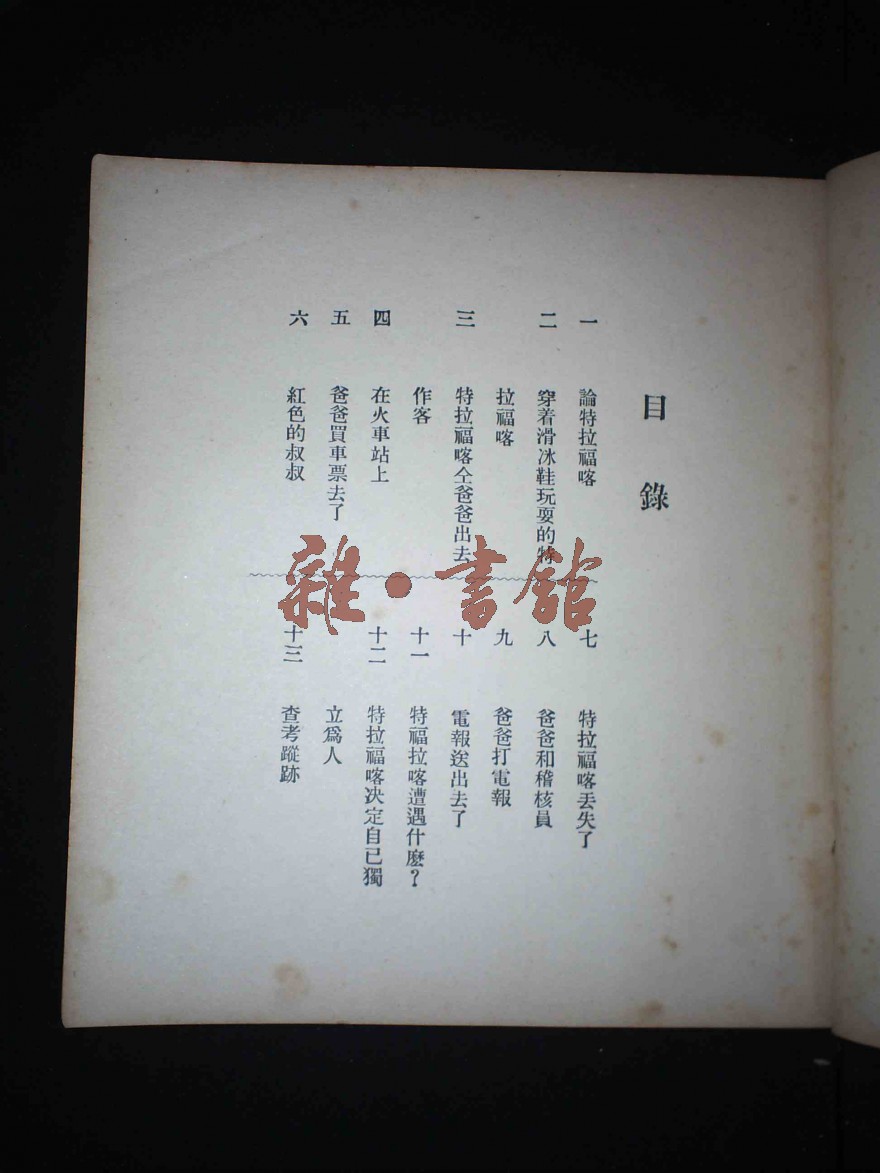 目錄
一 論特拉福喀
二 穿着滑冰鞋玩耍的特
拉福喀
三 特拉福喀仝爸爸出去
作客
四 在火車站上
五 爸爸買車票去了
六 紅色的叔叔
七 特拉福喀丟失了
八 爸爸和稽核員
九 爸爸打電報
十 電報送出去了
十一 特福拉喀遭遇什麽？
十二 特拉福喀決定自己獨
立爲人
十三 查考蹤跡
雜·書館